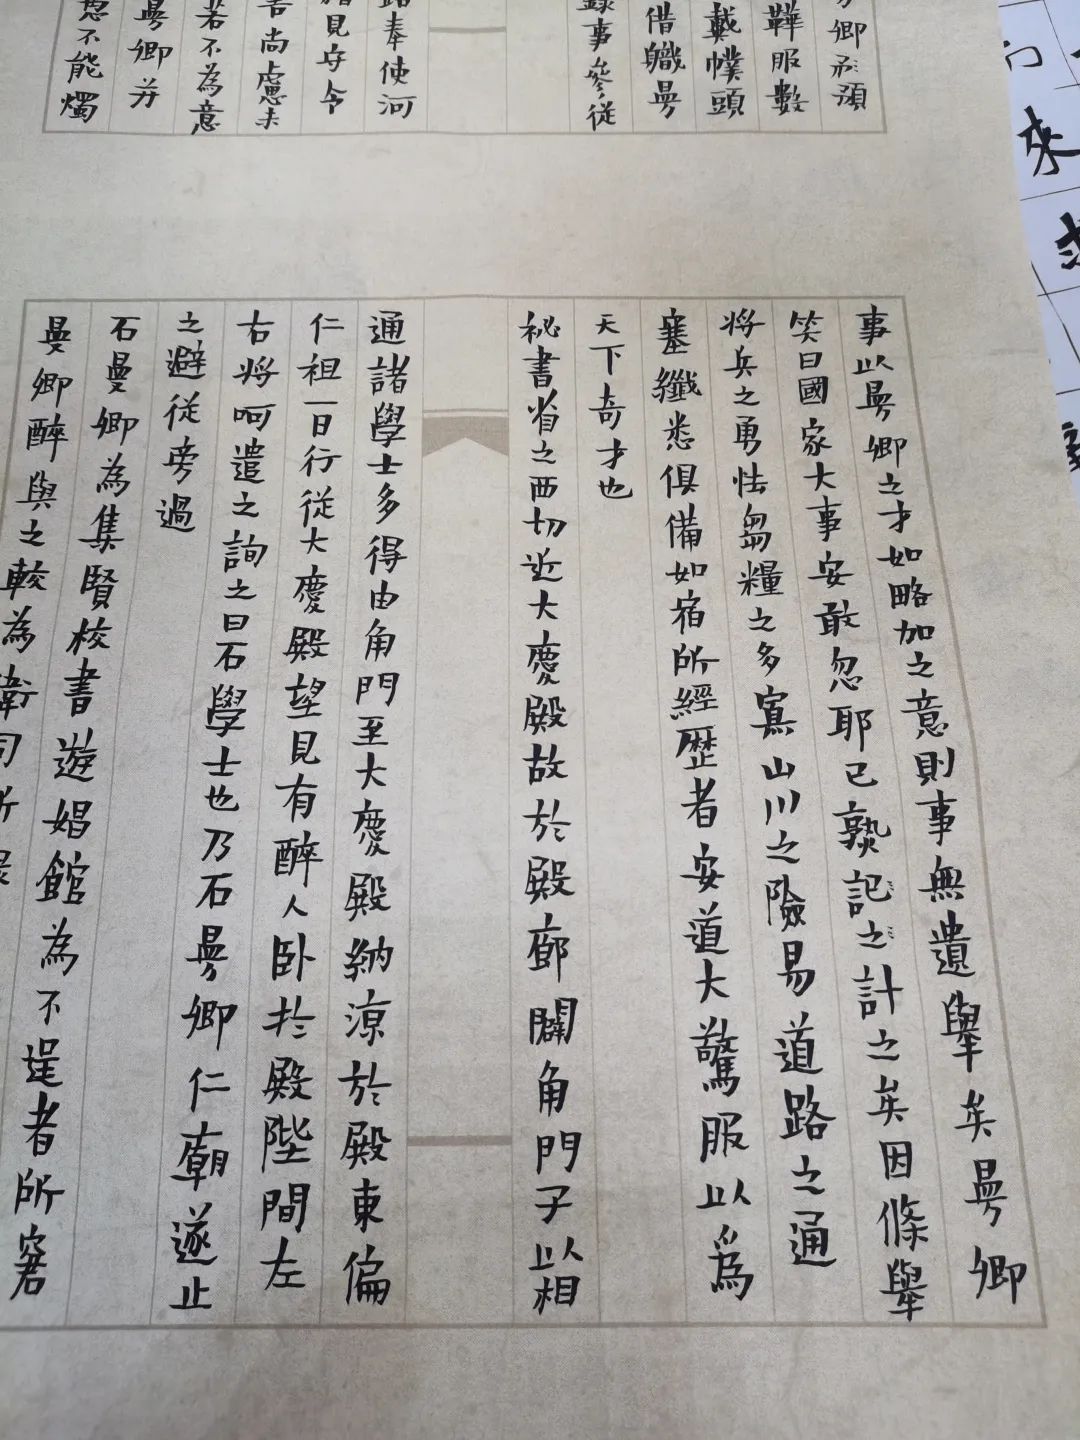 卿不預
鞾服數
戴幞頭
借職曼
錄事參從
路奉使河
見守令
吾尚慮未
若不為意
曼卿并
忽不能燭
事以曼卿之才如略加之意則事無遺舉矣曼卿
笑曰國家大事安敢忽耶已熟記之計之矣因條舉
將兵之勇怯芻糧之多寡山川之險易道路之通
塞纖悉俱備如宿所經歷者安道大驚服以為
天下奇才也
祕書省之西切近大慶殿故於殿廊闢角門子以相
通諸學士多得由角門至大慶殿納涼於殿東偏
仁祖一日行從大慶殿望見有醉人臥於殿陛間左
右將呵遣之詢之曰石學士也乃石曼卿仁廟遂止
之避從旁過
石曼卿為集賢校書遊娼館為不逞者所窘
曼卿醉與之較為衛司所錄
來